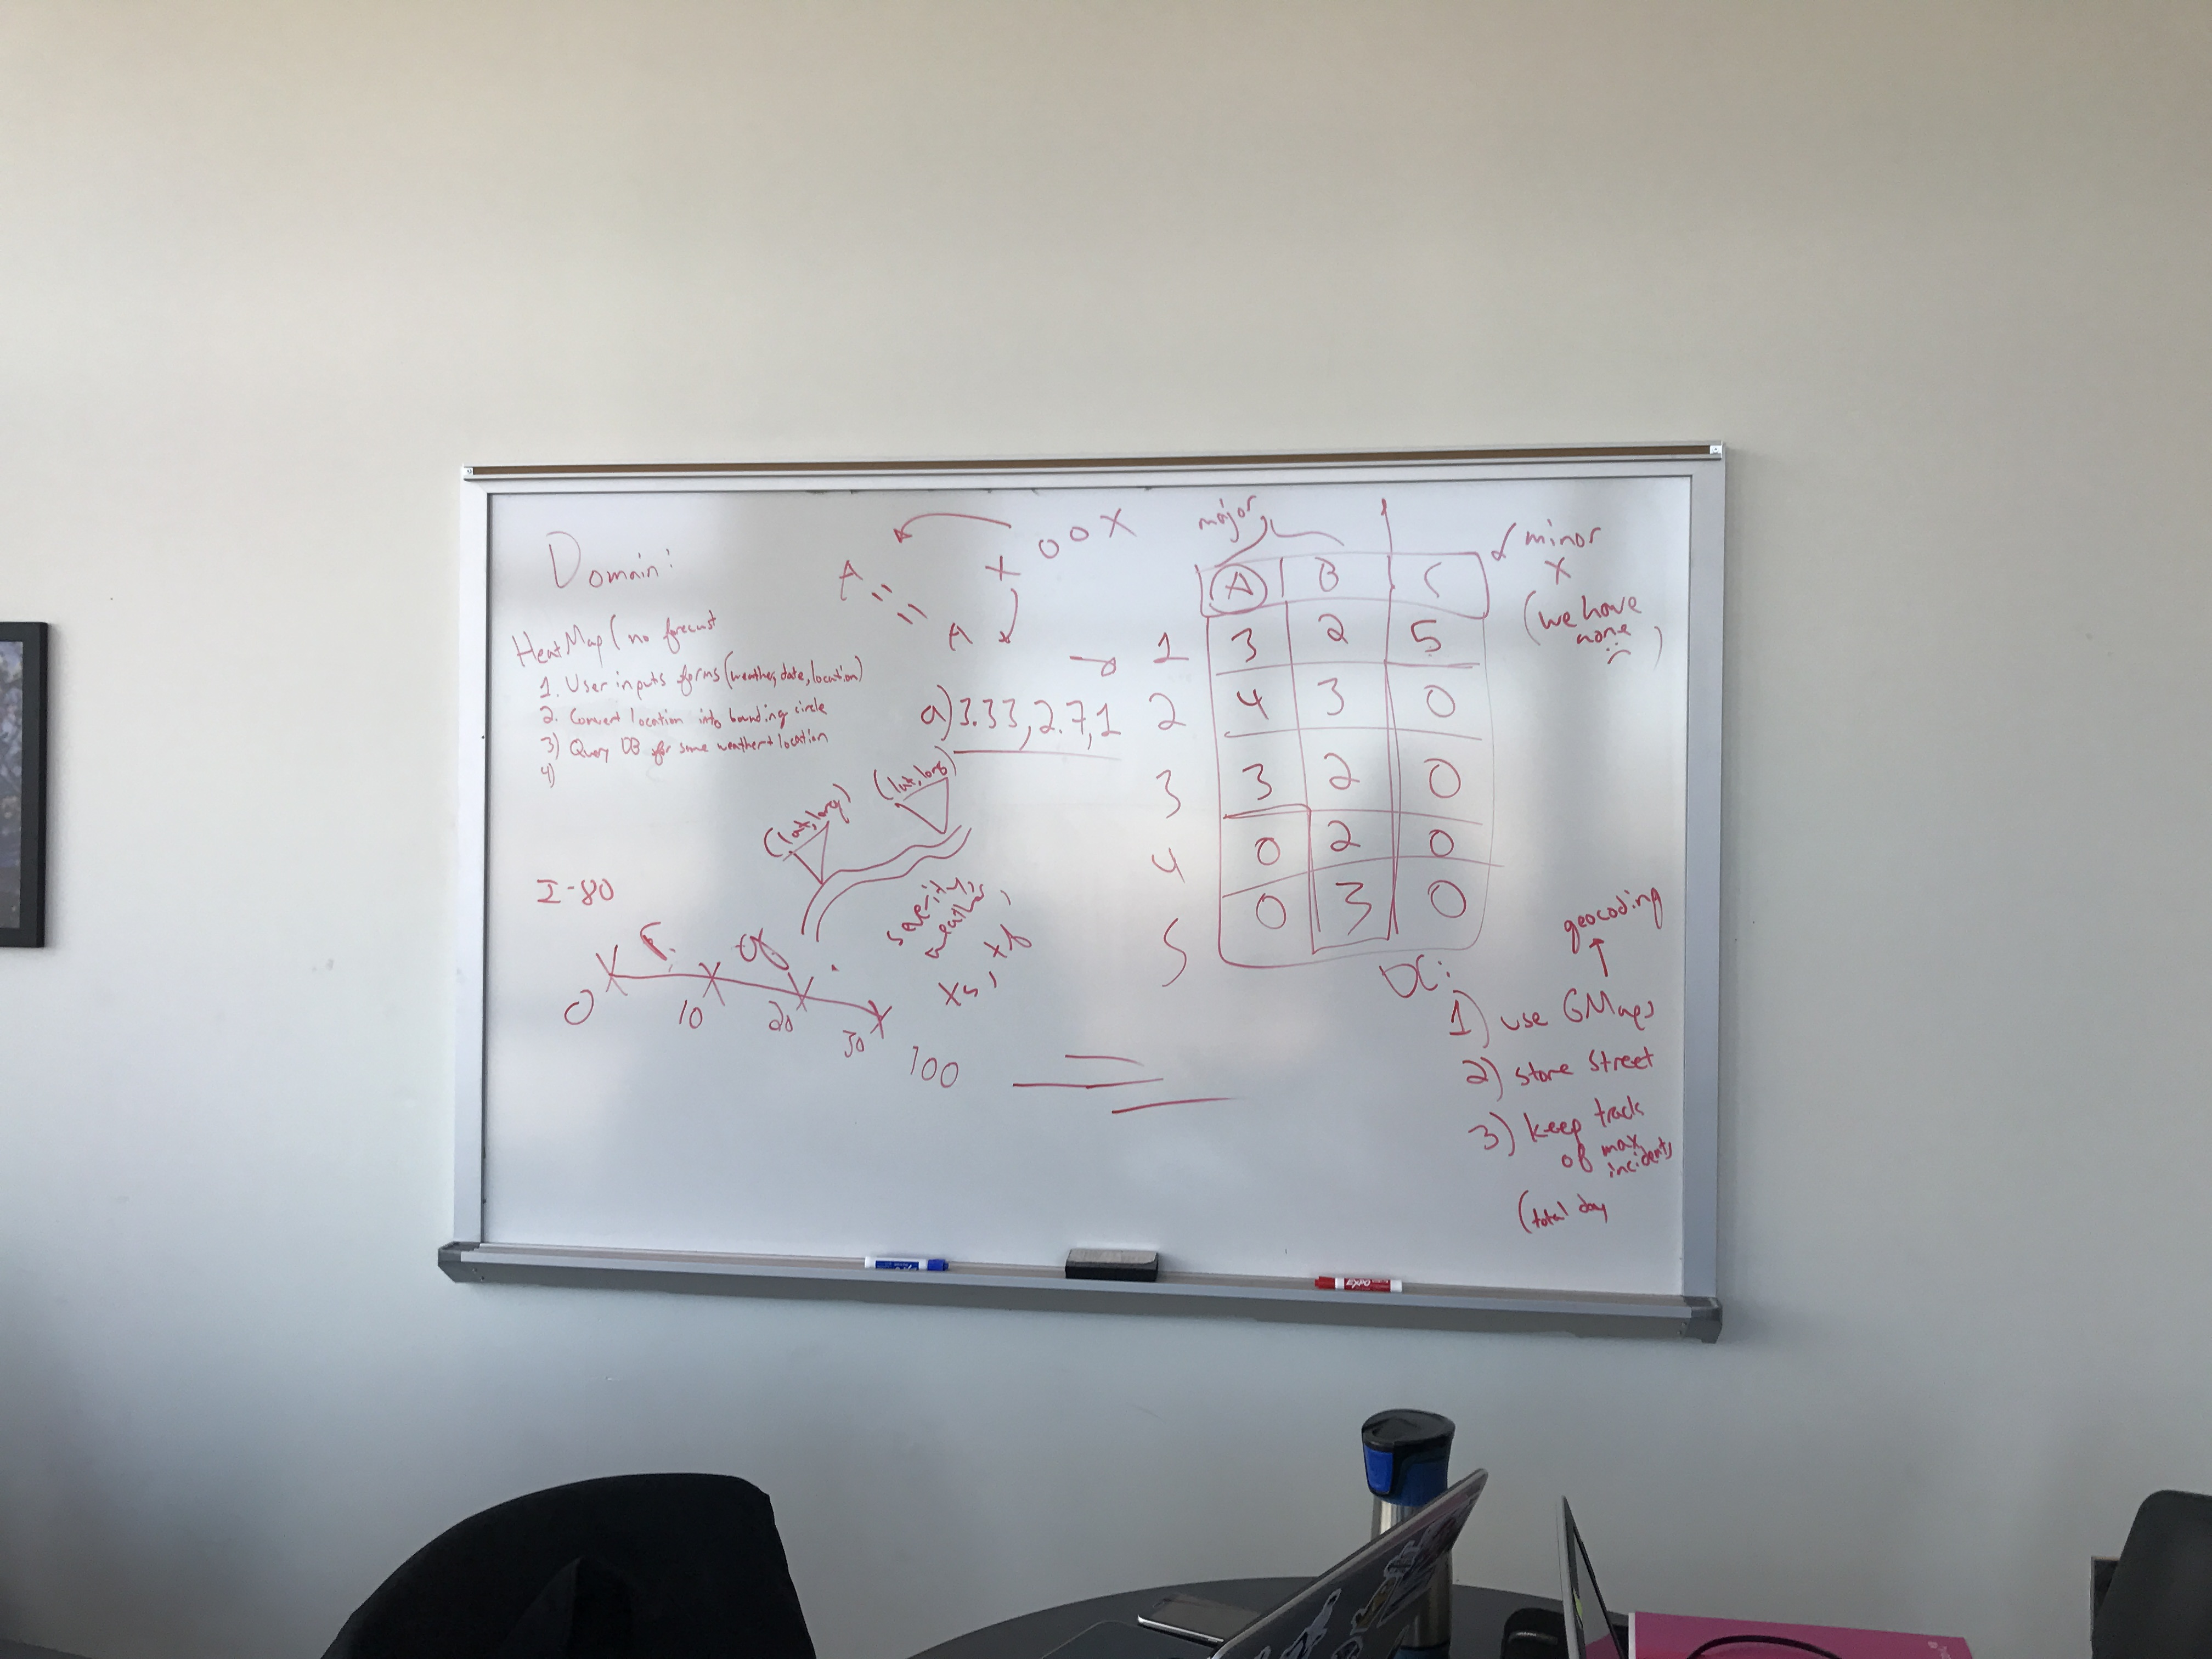 Domain:
HeatMap (no forecast
1. User inputs forms (weather, date, location)
2. Convert location into bounding circle
3) Query DB for same weather + location
4)
A
A
+ o o X
a) 3.33, 2.7, 1
(lat, long)
(lat, long)
severity,
weather,
I-80
0 10 20 30
100
major
minor
X
(we have
none
)
A B C
1 3 2 5
2 4 3 0
3 3 2 0
4 0 2 0
5 0 3 0
geocoding
DC:
1) use GMaps
2) store street
3) keep track
of max
incidents
(total day
EXPO